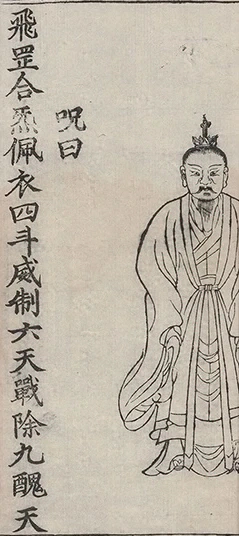 呪曰
飛罡合炁佩衣四斗威制六天戰除九醜天